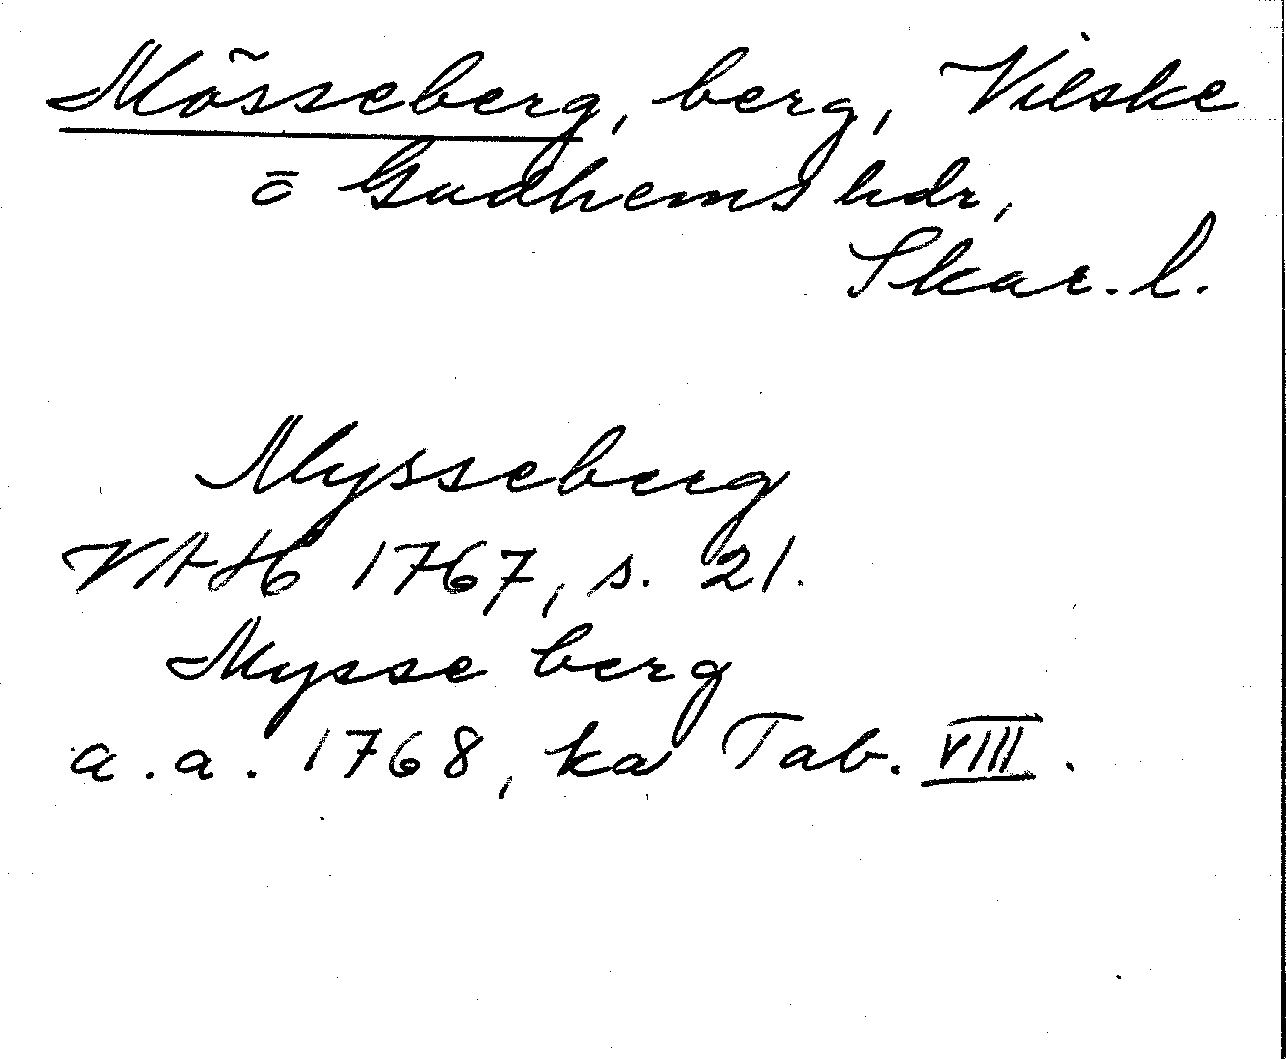 Mösseberg, berg, Vilske
o Gudhems hdr,
Skar. l.
Mysseberg
VAH 1767, s. 21.
Mysse berg
a. a. 1768, ka Tab. VIII.